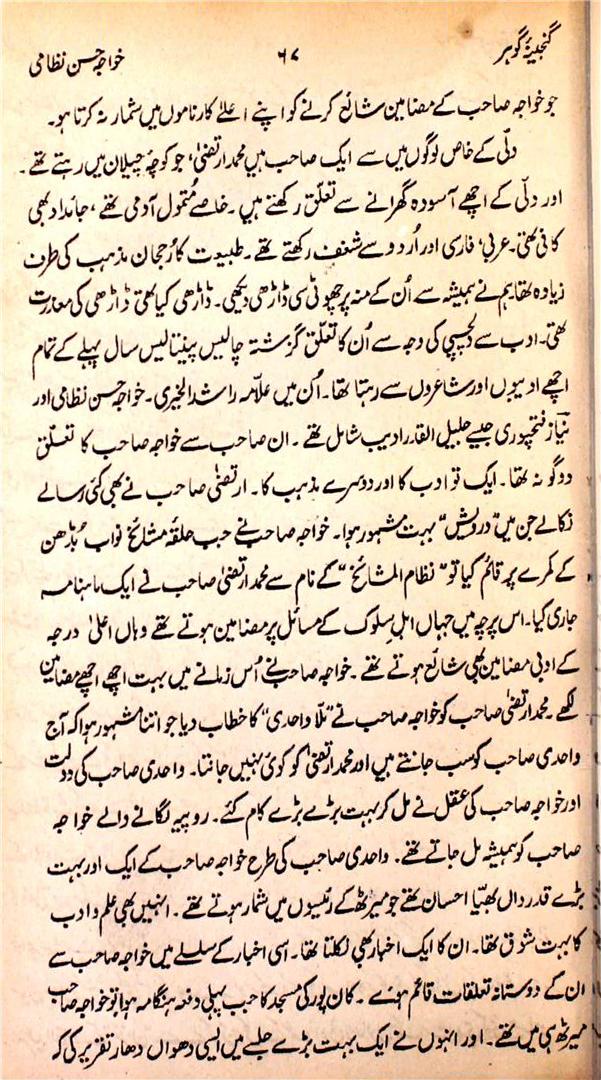 گنجینۂ گوہر
۶۷
خواجہ حسن نظامی
جو خواجہ صاحب کے مضامین شائع کرنے کو اپنے اعلیٰ کارناموں میں شمار نہ کرتا ہو۔
دلّی کے خاص لوگوں میں سے ایک صاحب ہیں محمد ارتضیٰ، جو کوچۂ چیلان میں رہتے تھے۔
اور دلّی کے اچھے آسودہ گھرانے سے تعلّق رکھتے ہیں۔ خاصے متموّل آدمی تھے، جائداد بھی
کافی تھی۔ عربی، فارسی اور اُردو سے شغف رکھتے تھے۔ طبیعت کا رُجحان مذہب کی طرف
زیادہ تھا ہم نے ہمیشہ سے اُن کے منہ پر چھوٹی سی ڈاڑھی دیکھی۔ ڈاڑھی کیا تھی ڈاڑھی کی معذرت
تھی۔ ادب سے دلچسپی کی وجہ سے اُن کا تعلّق گزشتہ چالیس پینتالیس سال پہلے کے تمام
اچھے ادیبوں اور شاعروں سے رہتا تھا۔ اُن میں علاّمہ راشد الخیری۔ خواجہ حسن نظامی اور
نیاز فتحپوری جیسے جلیل القدر ادیب شامل تھے۔ ان صاحب سے خواجہ صاحب کا تعلّق
دو گو نہ تھا۔ ایک تو ادب کا اور دوسرے مذہب کا۔ ارتضیٰ صاحب نے بھی کئی رسالے
نکالے جن میں "درویش" بہت مشہور ہوا۔ خواجہ صاحب نے جب حلقۂ مشائخ نواب بڈھن
کے کمرے پر قائم کیا تو "نظام المشائخ" کے نام سے محمد ارتضیٰ صاحب نے ایک ماہنامہ
جاری کیا۔ اس پرچہ میں جہاں اہلِ سلوک کے مسائل پر مضامین ہوتے تھے وہاں اعلیٰ درجہ
کے ادبی مضامین بھی شائع ہوتے تھے۔ خواجہ صاحب نے اُس زمانے میں بہت اچھے اچھے مضامین
لکھے۔ محمد ارتضیٰ صاحب کو خواجہ صاحب نے "ملّا واحدی" کا خطاب دیا جو اتنا مشہور ہوا کہ آج
واحدی صاحب کو سب جانتے ہیں اور محمد ارتضیٰ کو کوئی نہیں جانتا۔ واحدی صاحب کی دولت
اور خواجہ صاحب کی عقل نے مل کر بہت بڑے بڑے کام کئے۔ روپیہ لگانے والے خواجہ
صاحب کو ہمیشہ مل جاتے تھے۔ واحدی صاحب کی طرح خواجہ صاحب کے ایک اور بہت
بڑے قدر داں بھیّا احسان تھے جو میرٹھ کے رئیسوں میں شمار ہوتے تھے۔ انہیں بھی علم و ادب
کا بہت شوق تھا۔ ان کا ایک اخبار بھی نکلتا تھا۔ اسی اخبار کے سلسلے میں خواجہ صاحب سے
ان کے دوستانہ تعلقات قائم ہوئے۔ کان پور کی مسجد کا جب پہلی دفعہ ہنگامہ ہوا تو خواجہ صاحب
میرٹھ ہی میں تھے۔ اور انہوں نے ایک بہت بڑے جلسے میں ایسی دھواں دھار تقریر کی کہ